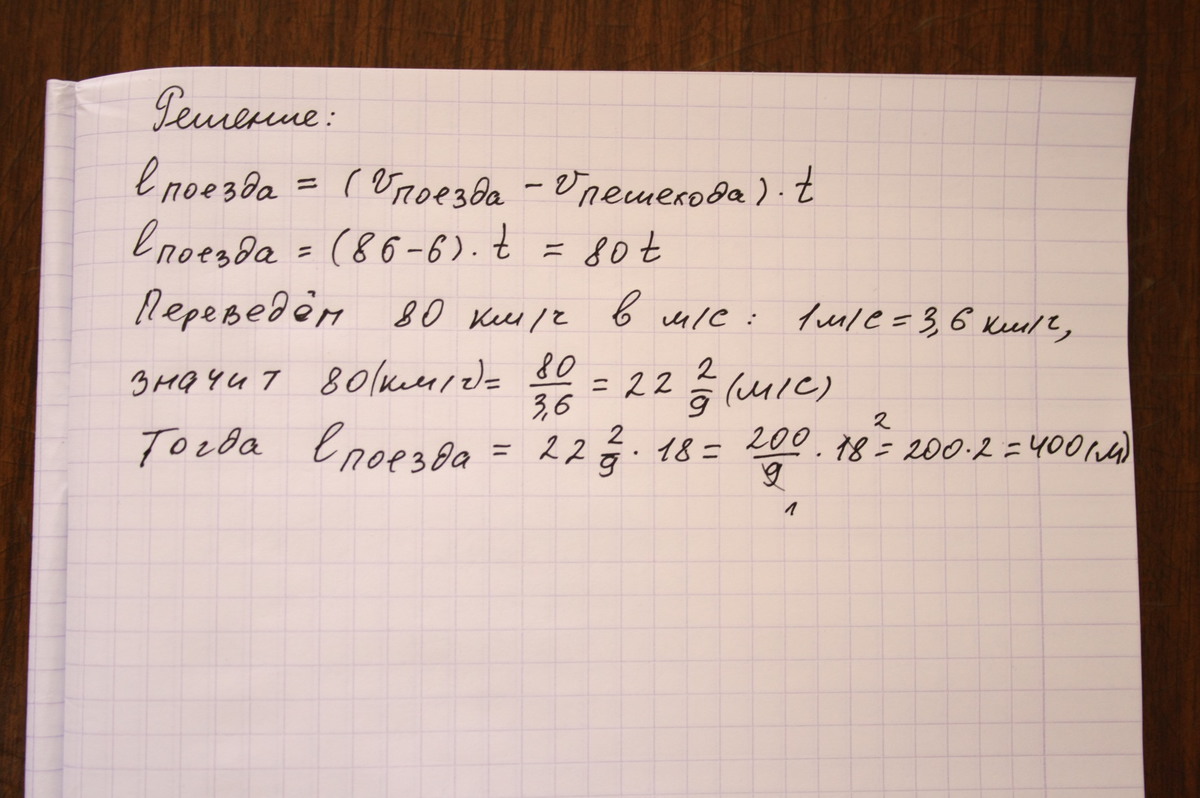 Решение:
l поезда = (v поезда − v пешехода) · t
l поезда = (86−6) · t = 80t
Переведём 80 км/ч в м/с: 1м/с = 3,6 км/ч,
значит 80(км/ч) = 80/3,6 = 22 2/9 (м/с)
Тогда l поезда = 22 2/9 · 18 = 200/9 · 18 2 = 200·2 = 400(м)
1